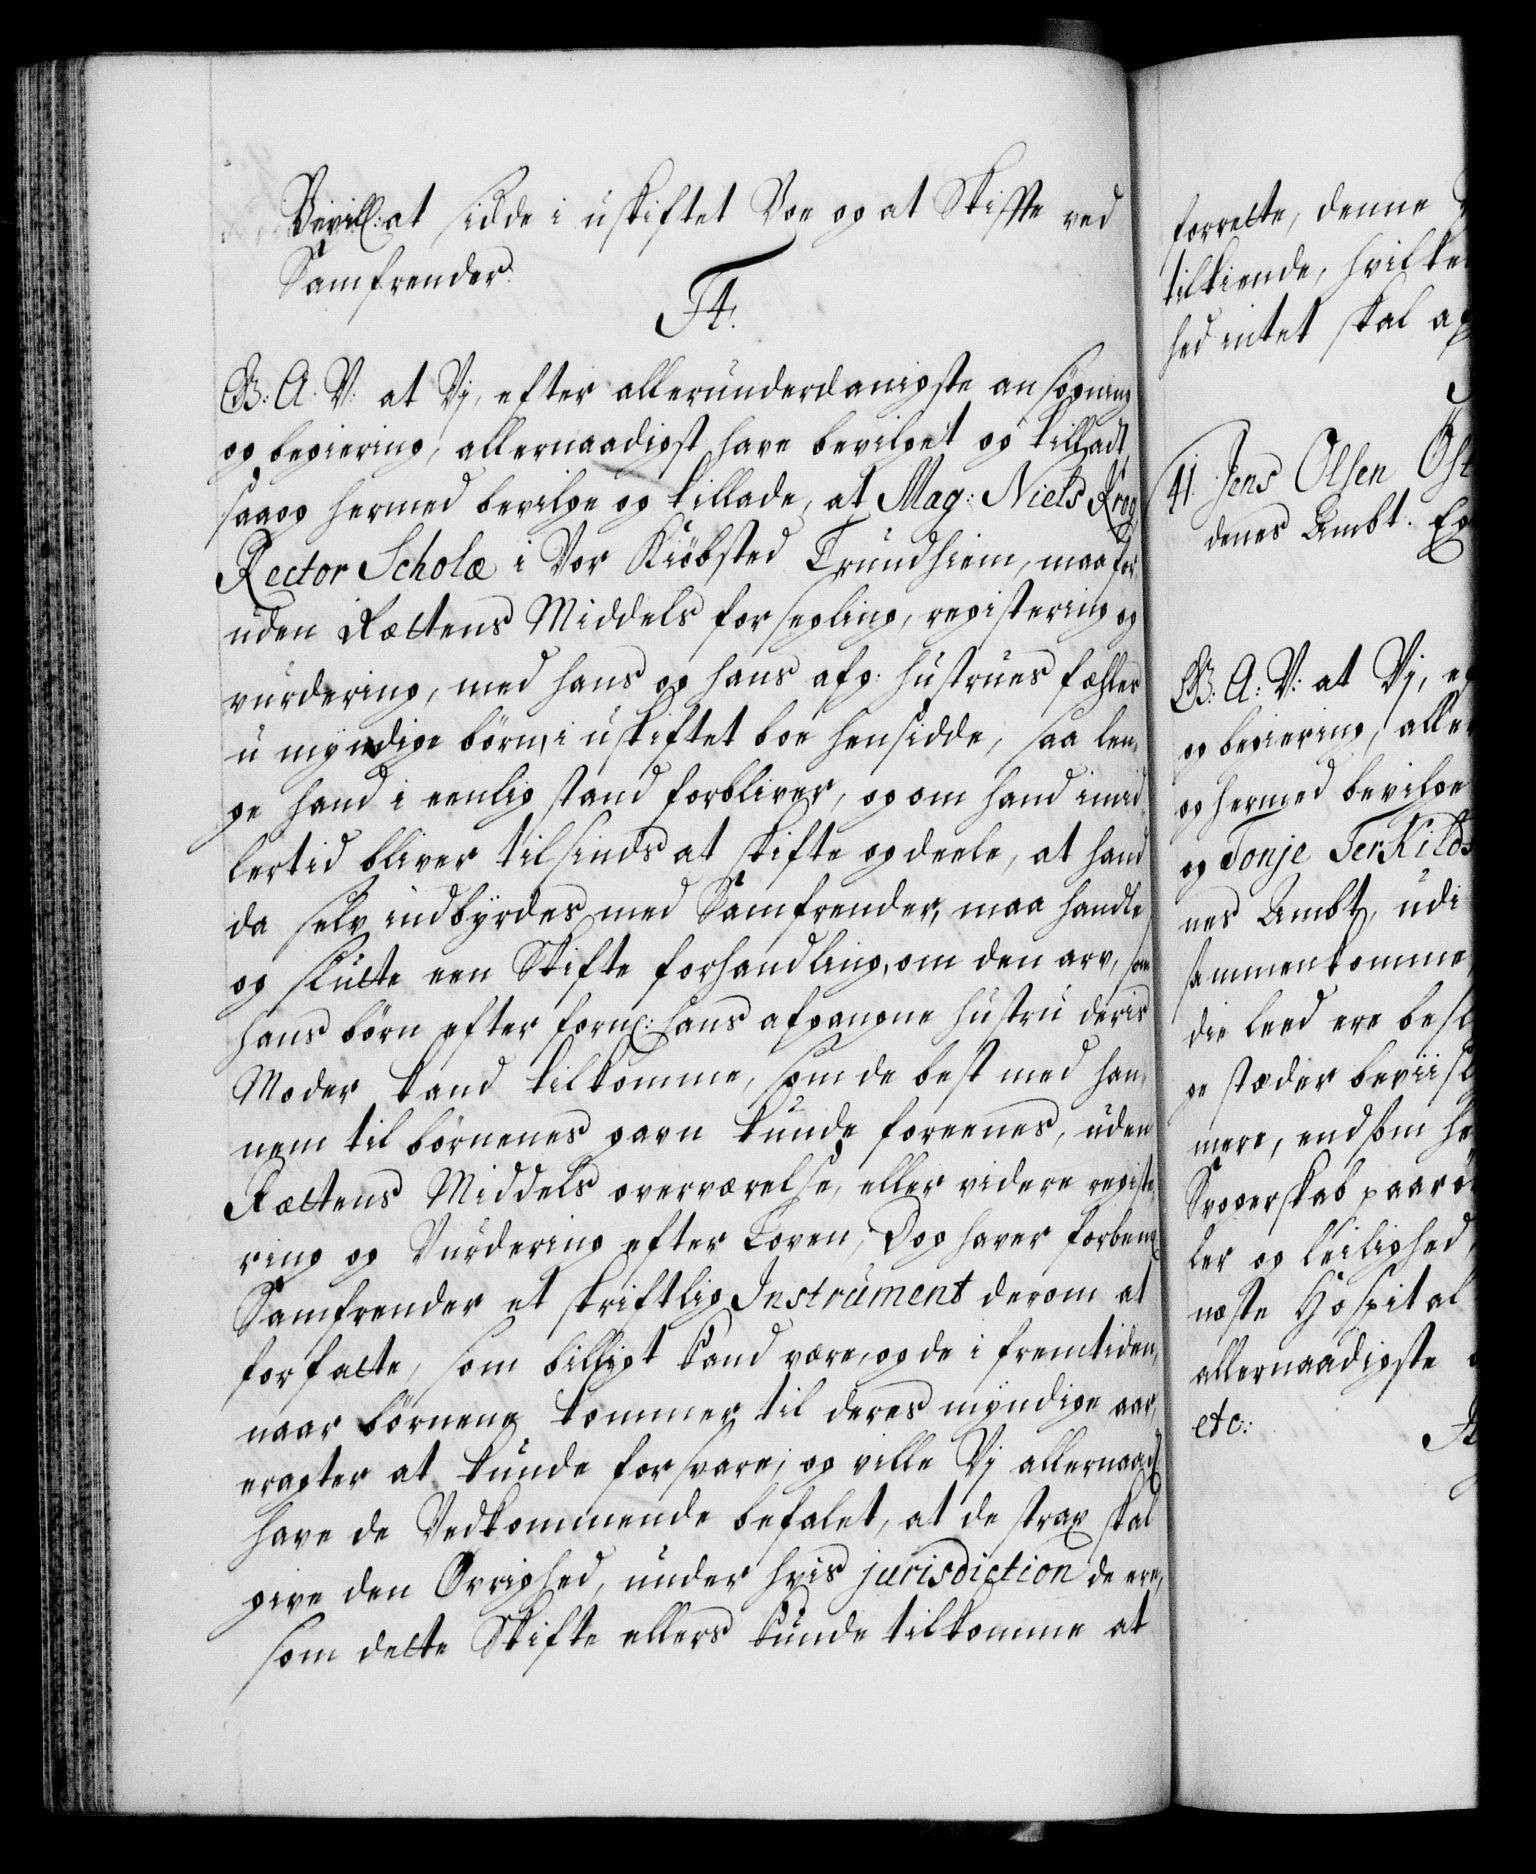 Bevill: at sidde i uskiftet Boe og at Skifte ved
Samfrender.
F4.
G. A. V. at Vj, efter allerunderdanigste ansögning
og begiering, allernaadigst have bevilget og tilladt,
saa og hermed bevilge og tillade, at Mag: Niels Krog
Rector Scholæ i Vor Kiöbsted Trundhiem, maa for-
uden Rættens Middels forsegling, registering og
vurdering, med hans og hans afg: hustrues fælles
u myndige börn, i uskiftet boe hensidde, saa len-
ge hand i eenlig stand forbliver, og om hand imid-
lertid bliver tilsinds at skifte og deele, at hand
da selv indbyrdes med Samfrender, maa handle
og slutte een Skifte forhandling, om den arv, som
hans börn efter forn: hans afgangne hustru deris
Moder kand tilkomme, som de best med han-
nem til börnenes gavn kunde foreenes, uden
Rættens Middels overværelse, eller videre registe-
ring og Vurdering efter Loven; Dog haver forbem:
Samfrender et skriftlig Instrument derom at
forfatte, som billigt kand være, og de i fremtiden,
naar börnene kommer til deres myndige aar,
eragter at kunde forsvare; og ville Vj allernaad:
have de Vedkommende befalet, at de strax skal
give den Övrighed, under hvis jurisdiction de ere,
som dette Skifte ellers kunde tilkomme at
forrette, denne
tilkiende, hvilke
hed intet skal
41. Jens Olsen
denes Ambt.
G. A. V. at Vj,
og begiering, aller
og hermed bevilge
og Tonje Terkilds
nes Ambt, udi
sammenkomme
die leed ere besl
ge stæder beviisl
mere, end som he
Svogerskab paarö
ler og leilighed,
næste Hospital
allernaadigste
etc: